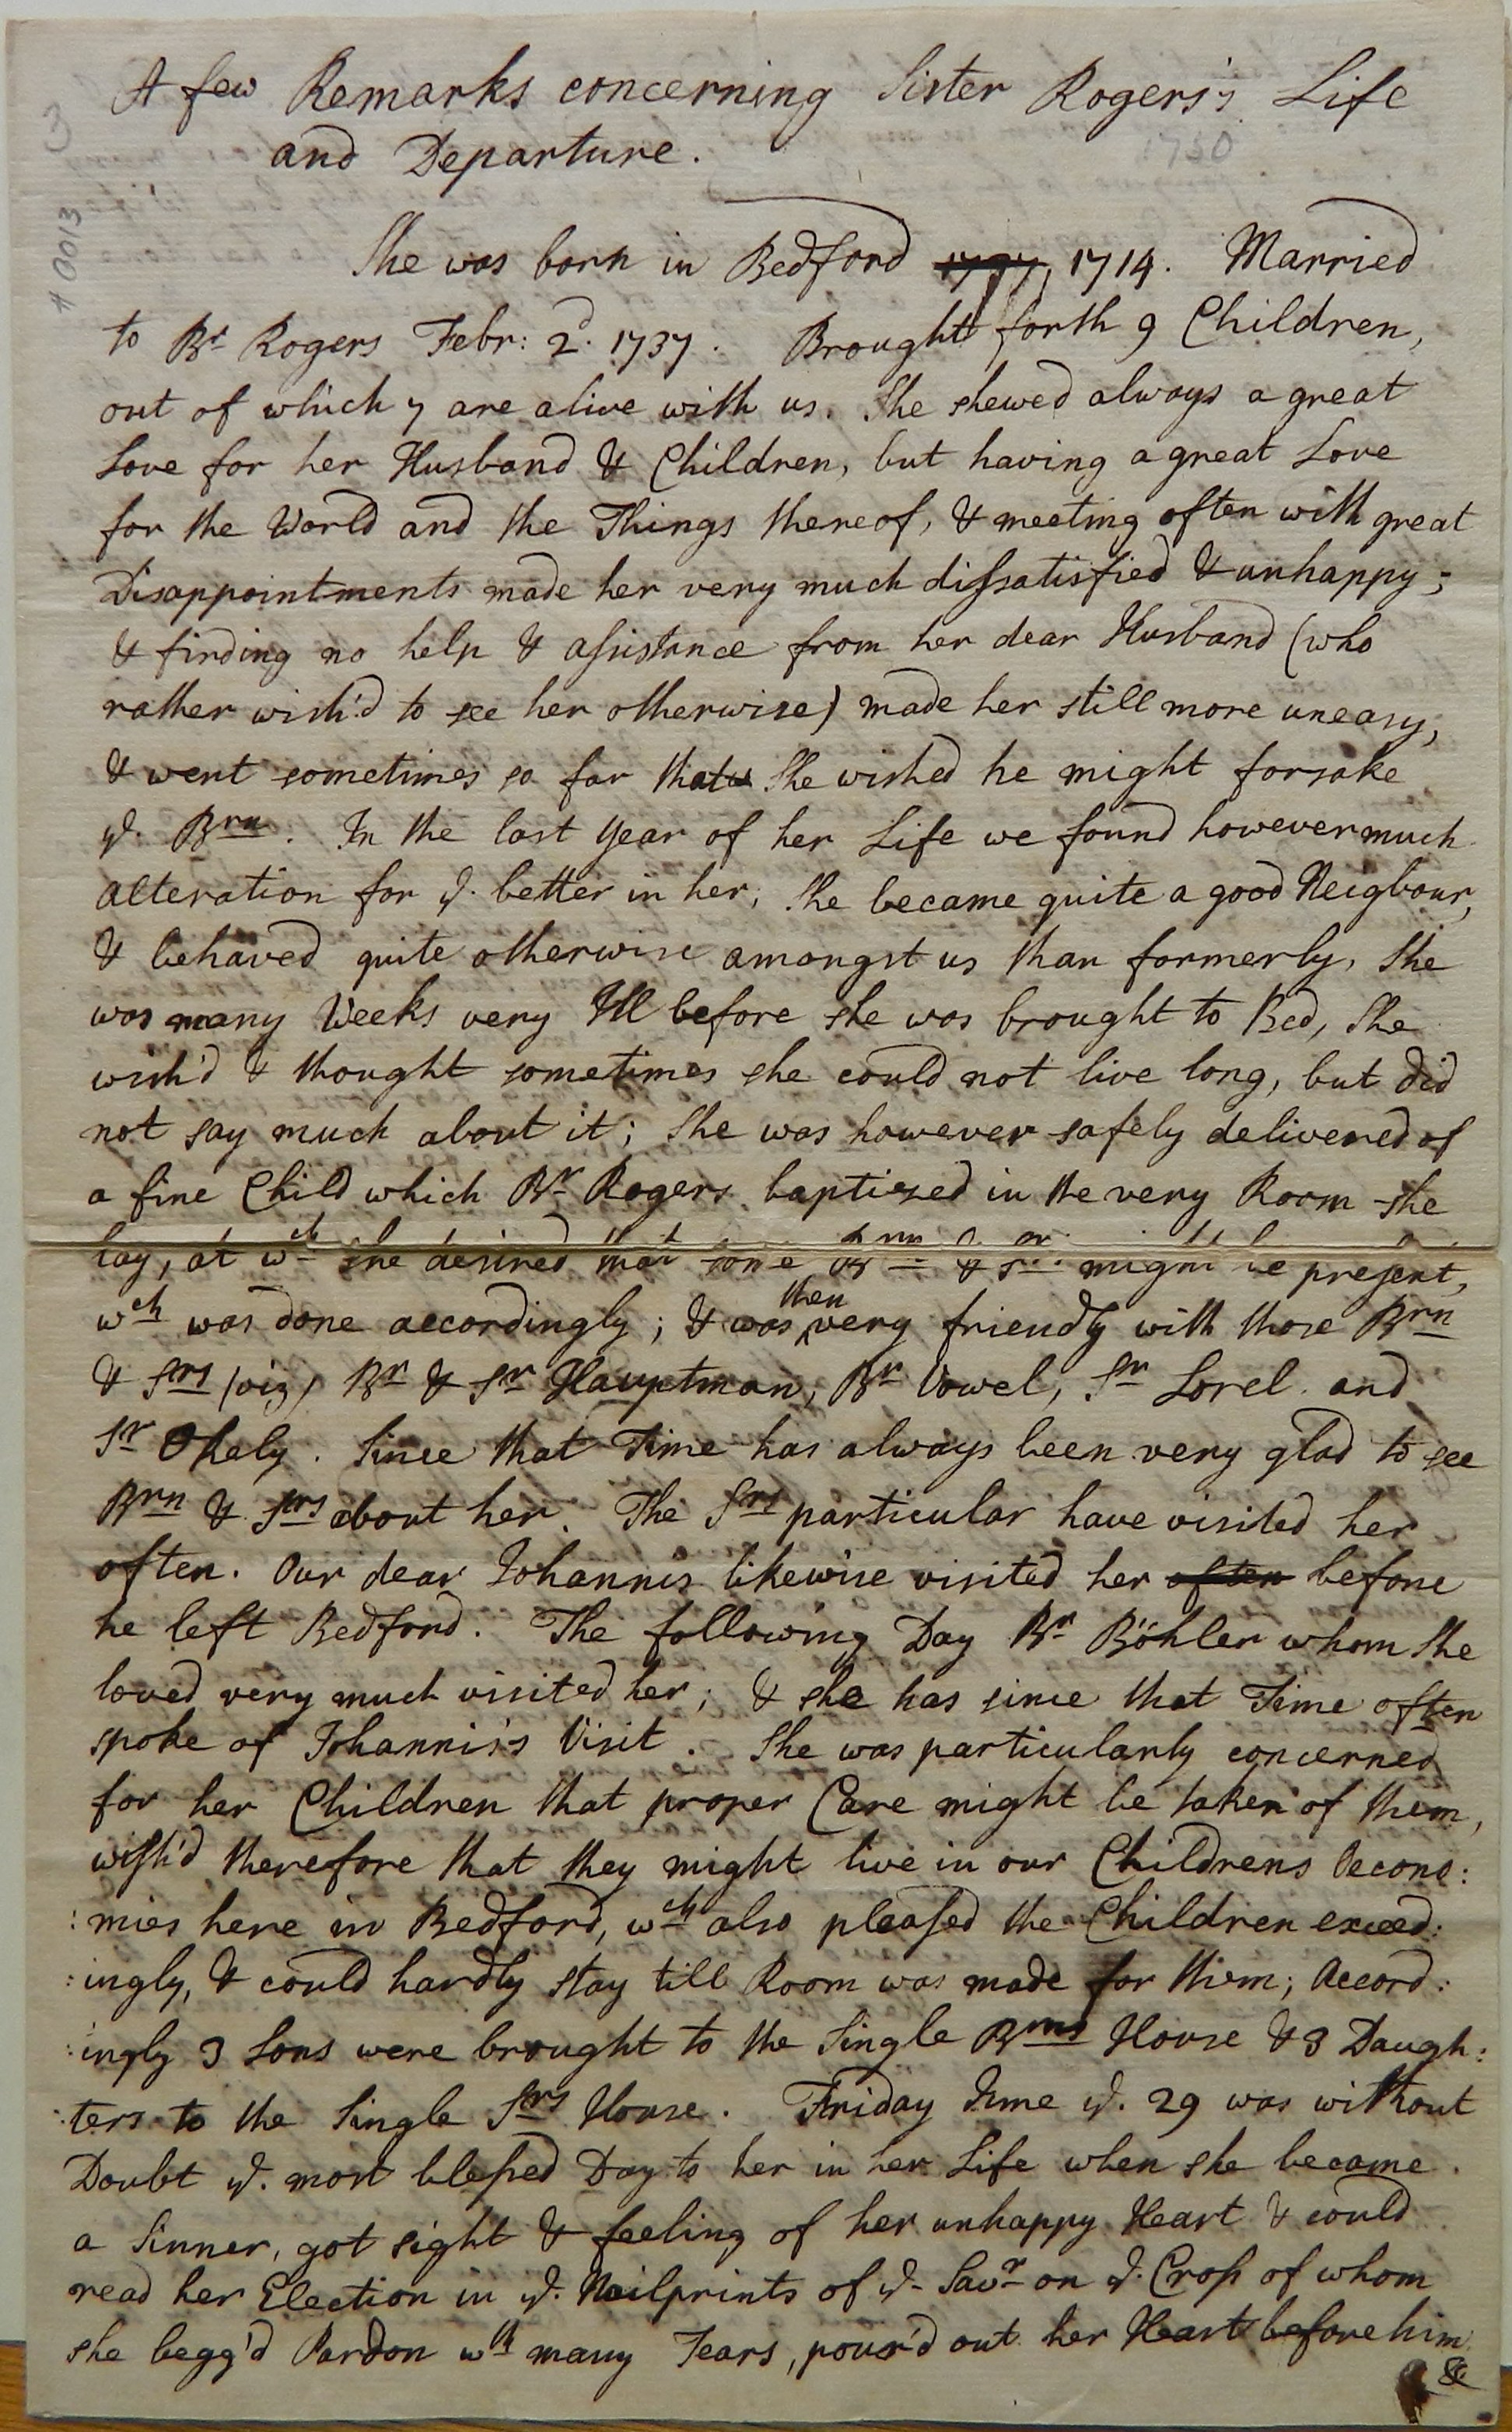 A few Remarks concerning Sister Rogers's Life
and Departure.
1750
# 0013
3
She was born in Bedford 1737, 1714. Married
to Br Rogers Febr: 2d. 1737. Brought forth 9 Children,
out of which 7 are alive with us. She shewed always a great
Love for her Husband & Children, but having a great Love
for the World and the Things thereof, & meeting often with great
Disappointments made her very much dissatisfied & unhappy;
& finding no help & assistance from her dear Husband (who
rather wish'd to see her otherwise) made her still more uneasy,
& went sometimes so far that She wished he might forsake
ye. Brn. In the last Year of her Life we found however much
alteration for ye. better in her; She became quite a good Neigbour,
& behaved quite otherwise amongst us than formerly, She
was many Weeks very Ill before she was brought to Bed, She
wish'd & thought sometimes she could not live long, but did
not say much about it; She was however safely delivered of
a fine Child which Br Rogers baptized in the very Room she
lay, at wch she desired that some Brn & Srs might be present,
wch was done accordingly; & was then very friendly with those Brn
& Srs (viz) Br & Sr Hauptman, Br Vowel, Sr Lorel and
Sr Okely. Since that Time has always been very glad to see
Brn & Srs about her. The Srs particular have visited her
often. Our dear Johannes likewise visited her often before
he left Bedford. The following Day Br Böhler whom She
loved very much visited her; & she has since that Time often
spoke of Johannis's Visit. She was particularly concerned
for her Children that proper Care might be taken of them,
wish'd therefore that they might live in our Childrens Oecono:
:mies here in Bedford, wch also pleased the Children exceed:
:ingly, & could hardly stay till Room was made for them; Accord:
:ingly 3 Sons were brought to the Single Brns House & 3 Daugh:
:ters to the Single Srs House. Friday June ye. 29 was without
Doubt ye. most blessed Day to her in her Life when she became
a Sinner, got sight & feeling of her unhappy Heart & could
read her Election in ye. Nailprints of ye. Savr on ye. Cross of whom
she begg'd Pardon wth many Tears, pour'd out her Heart before him
&